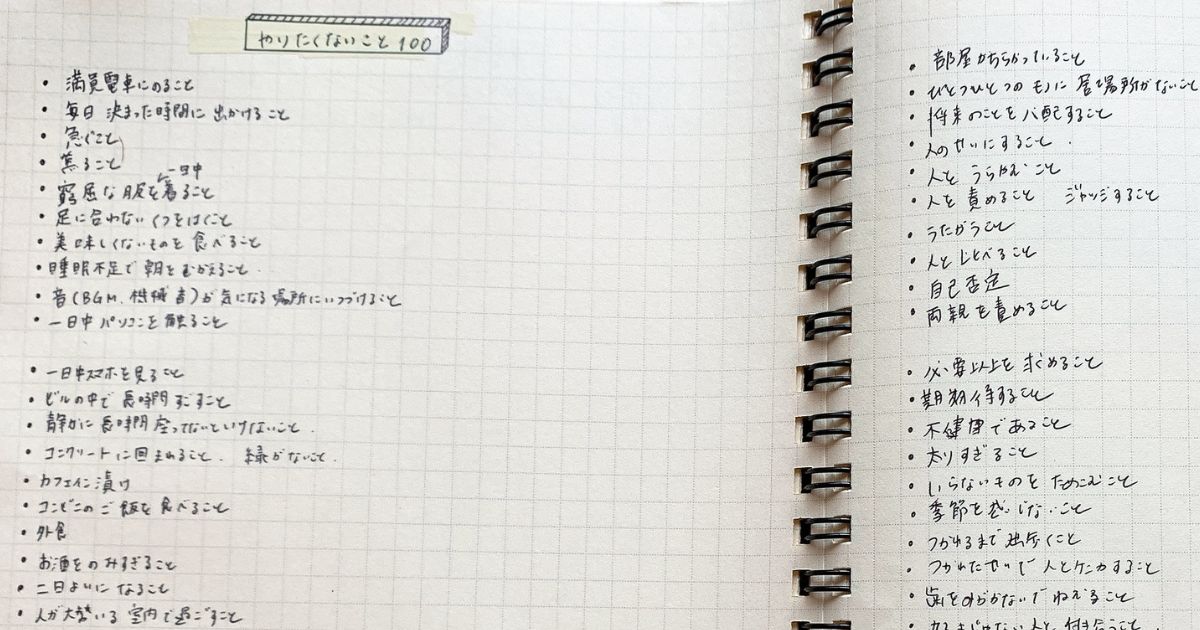 やりたくないこと 100
・満員電車にのること
・毎日 決まった時間に 出かけること
・急ぐこと
・焦ること
一日中
・窮屈な服を着ること
・足に合わないくつをはくこと
・美味しくないものを食べること
・睡眠不足で朝をむかえること
・音(BGM、機械音)が気になる場所にいつづけること
・一日中パソコンを触ること
・一日中スマホを見ること
・ビルの中で長時間すごすこと
・静かに長時間座ってないといけないこと.
・コンクリートに囲まれること. 緑がないこと.
・カフェイン漬け
・コンビニのご飯を食べること
・外食
・お酒をのみすぎること
・二日よいになること
・人が大勢いる室内で過ごすこと
・部屋がちらかっていること
・ひとつひとつのモノに居場所がないこと
・将来のことを心配すること
・人のせいにすること.
・人をうらやむこと
・人を責めること ジャッジすること
・うたがうこと
・人とくらべること
・自己否定
・両親を責めること
・必要以上を求めること
・期待すること
・不健康であること
・太りすぎること
・いらないものをためこむこと
・季節を感じないこと
・つかれるまで出歩くこと
・つかれたせいで人とケンカすること
・歯をみがかないでねること
人と付き合うこと.